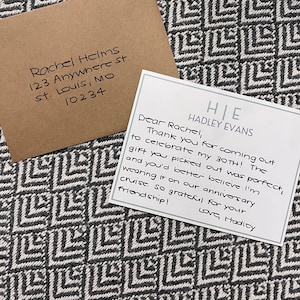 Rachel Helms
123 Anywhere st
St. Louis, MO
10234
H|E
HADLEY EVANS
Dear Rachel,
Thank you for coming out
to celebrate my 30th! The
gift you picked out was perfect,
and you'd better believe I'm
wearing it on our anniversary
cruise. So grateful for your
friendship!
Love, Hadley